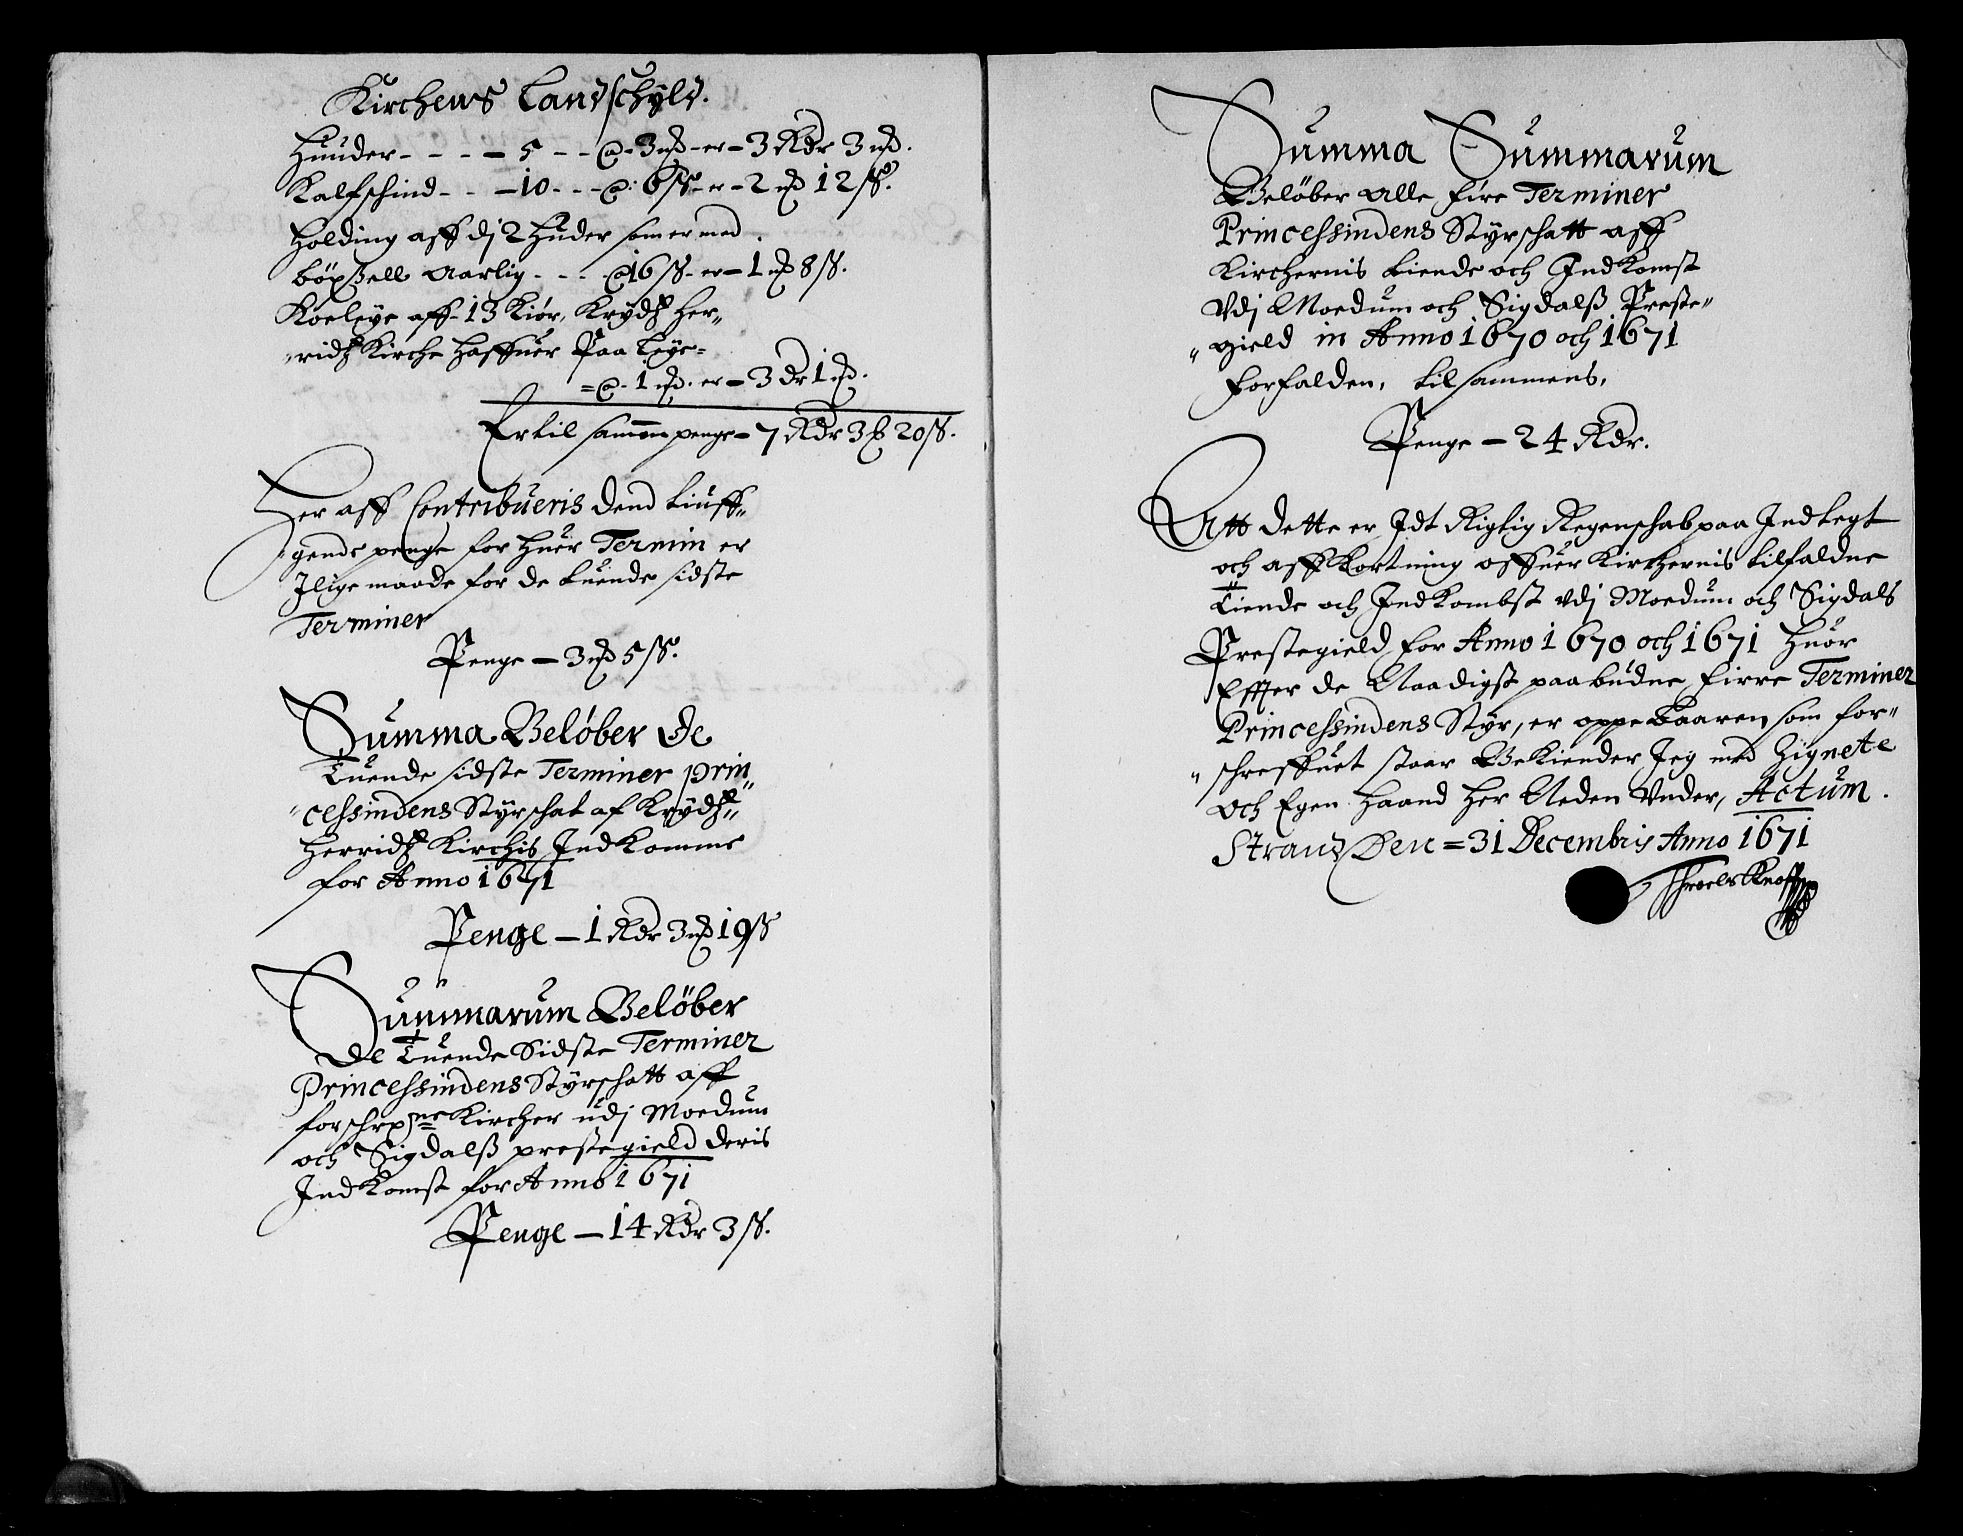 Kirchens Landschyld.
Huuder - - - - 5 - - @ - 3 mk - er - 3 Rdr 3 mk.
Kalfschind - - - 10 - - - @: 6 ß - er - 2 mk 12 ß.
Holding aff dj 2 Huder som er med
böxßell Aarlig - - - @ 16 ß - er - 1 mk 8 ß.
Koeleye aff - 13 Kiör, Krydtz Her„
„ridtz Kirche Haffuer Paa Leye =
= @ - 1 mk. er - 3 dr 1 mk.
Er til samen penge - 7 Rdr 3 mk 20 ß.
Her aff Contribueris dend tiuff„
„gende penge for huer Termin er
Jlige maade for de tuende sidste
Terminer
Penge - 3 mk 5 ß.
Summa Beløber De
Tuende sidste Terminer prin„
„cessindens Styrschat af Krydtz„
Herridtz Kirchis Jndkomme
for Anno 1671
Penge - 1 Rdr 3 mk 19 ß
Summarum Belöber
De Tuende Sidste Terminer
Princessindens Styrschatt aff
forschrefne Kircher udj Moedum
och Sigdalß prestegield deris
Jndkomst for Anno 1671
Penge - 14 Rdr 3 ß.
Summa Summarum
Belöber Alle fire Terminer
Princessindens Styrschatt aff
Kirchernis tiende och Jndkomst
Vdj Moedum och Sigdalß Preste„
„gield in Anno 1670 och 1671
forfalden, tilsammens,
Penge - 24 Rdr.
Att dette er Jdt Rigtig Regenschab paa Jndtegt
och affkortning offuer Kirchernis tilfaldne
Tiende och Jndkombst vdj Moedum och Sigdals
Prestegield for Anno 1670 och 1671 huor
Effter de Naadigst paabudne firre Terminer
Princessindens Styr, er oppebaaren som for„
„schreffuet staar Bekiender Jeg med Zignete
och Egen haand her Neden Vnder, Actum.
Strand Den = 31 Decembris Anno 1671